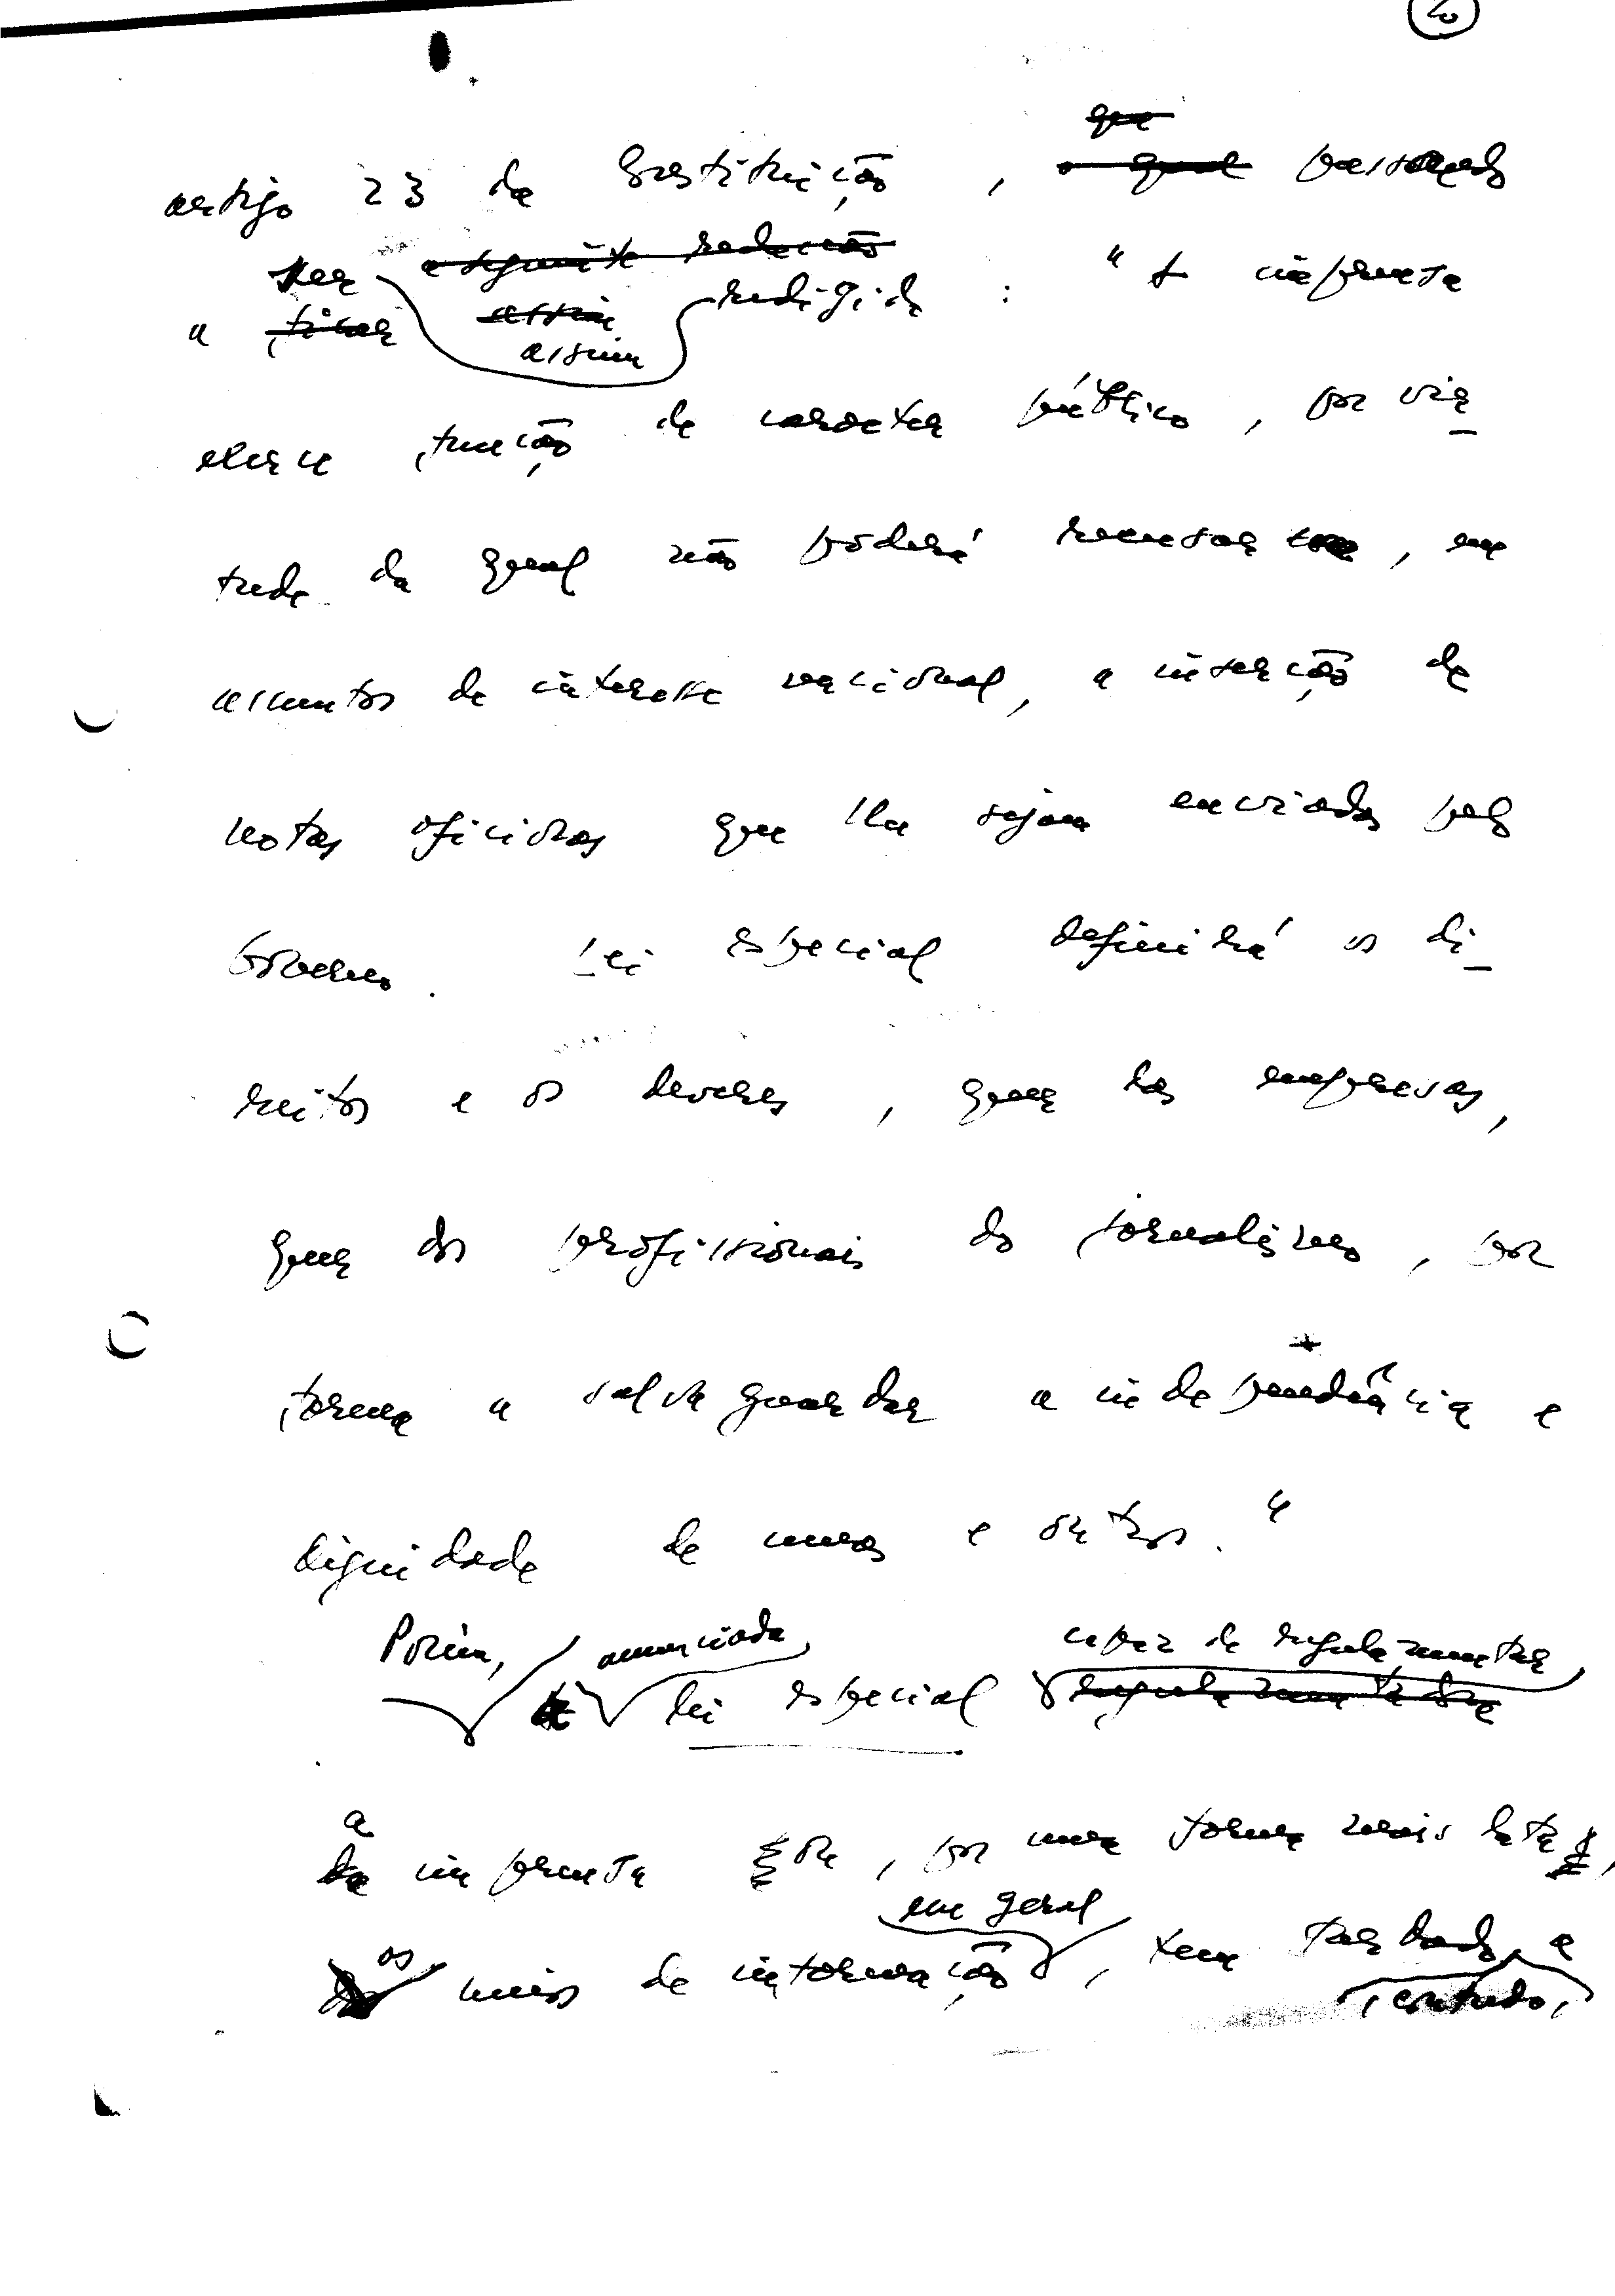 20
que
artigo 23 da Constituição, o qual passando
ter a seguinte redacção
a ficar assim redigido : "A imprensa
assim
exerce função de caracter público, por vir_
tude da qual não poderá recusar, em
assuntos de interesse nacional, a inserção de
notas oficiosas que lhe sejam enviadas pelo
Governo. Lei especial definirá os di_
reitos e os deveres, quer das empresas,
quer dos profissionais do jornalismo, por
forma a salvaguardar a independência e
dignidade de umas e outros."
Porém, anunciada capaz de regulamentar
a lei especial regulamentadora
a
da imprensa ou, por uma forma mais lata,
em geral
os meios de informação, tem tardado a
, contudo,